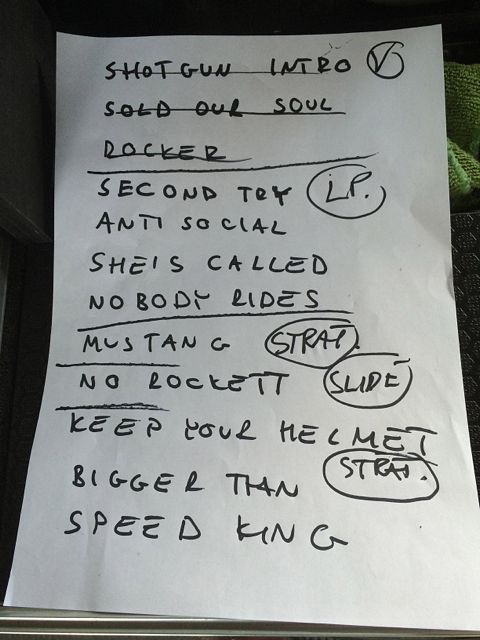 SHOTGUN INTRO V
SOLD OUR SOUL
ROCKER
SECOND TRY L.P.
ANTI SOCIAL
SHEIS CALLED
NOBODY RIDES
MUSTANG STRAT.
NO ROCKETT SLIDE
KEEP YOUR HELMET
BIGGER THAN STRAT.
SPEED KING